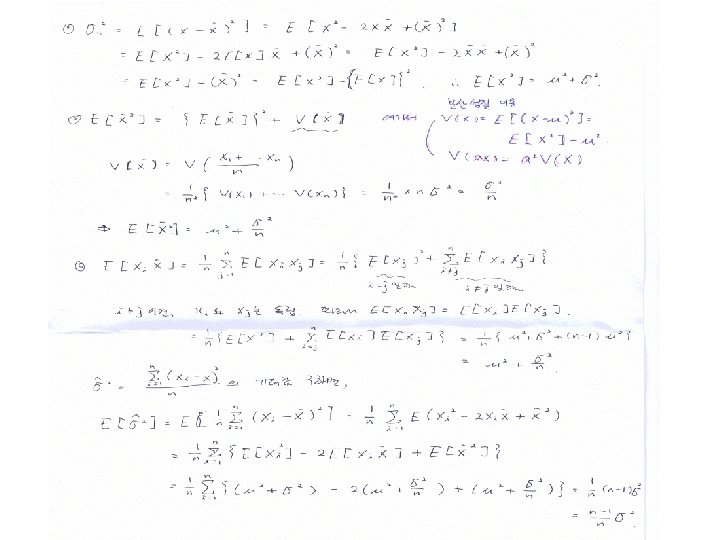 ① σ² = E[(x-x̄)²] = E[x²-2xx̄+(x̄)²]
= E[x²]-2E[x]x̄+(x̄)² = E[x²]-2x̄x̄+(x̄)²
= E[x²]-(x̄)² = E[x²]-{E[x]}². ∴ E[x²]=μ²+σ².
분산성질 이용
② E[x̄²] = {E[x̄]}²+V[x̄] 여기서 V(x)=E[(x-μ)²]=
E[x²]-μ².
V(ax)=a²V(x)
V[x̄] = V(x₁+…xₙ/n)
= 1/n²{V(x₁)+…V(xₙ)} = 1/n² × nσ² = σ²/n
⇒ E[x̄²]=μ²+σ²/n
③ E[xᵢx̄] = 1/n Σⱼ₌₁ⁿ E[xᵢxⱼ] = 1/n{E[xⱼ]²+Σᵢ≠ⱼⁿ E[xᵢxⱼ]}
i=j 일때 i≠j 일때
i≠j 이면, xᵢ와 xⱼ는 독립 따라서 E[xᵢxⱼ]=E[xᵢ]E[xⱼ].
= 1/n{E[x²]+Σᵢ≠ⱼⁿ E[xᵢ]E[xⱼ]} = 1/n{μ²+σ²+(n-1)μ²}
= μ²+σ²/n.
σ̂² = Σᵢ₌₁ⁿ(xᵢ-x̄)²/n 의 기대값 구하면,
E[σ̂²] = E[1/n Σᵢ₌₁ⁿ(xᵢ-x̄)²] = 1/n Σᵢ₌₁ⁿ E(xᵢ²-2xᵢx̄+x̄²)
= 1/n Σᵢ₌₁ⁿ{E[xᵢ²]-2E[xᵢx̄]+E[x̄²]}
= 1/n Σᵢ₌₁ⁿ{(μ²+σ²)-2(μ²+σ²/n)+(μ²+σ²/n)} = 1/n(n-1)σ²
= n-1/n σ².